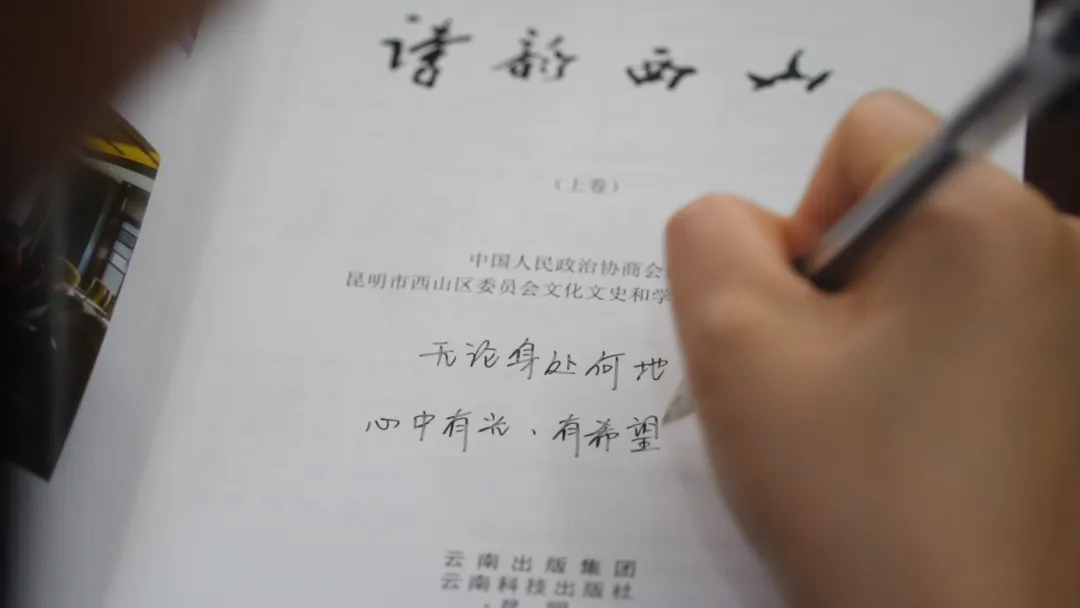 读행西山
（上卷）
中国人民政治协商会
昆明市西山区委员会文化文史和学
无论身处何地
心中有光、有希望
云南出版集团
云南科技出版社
·昆明